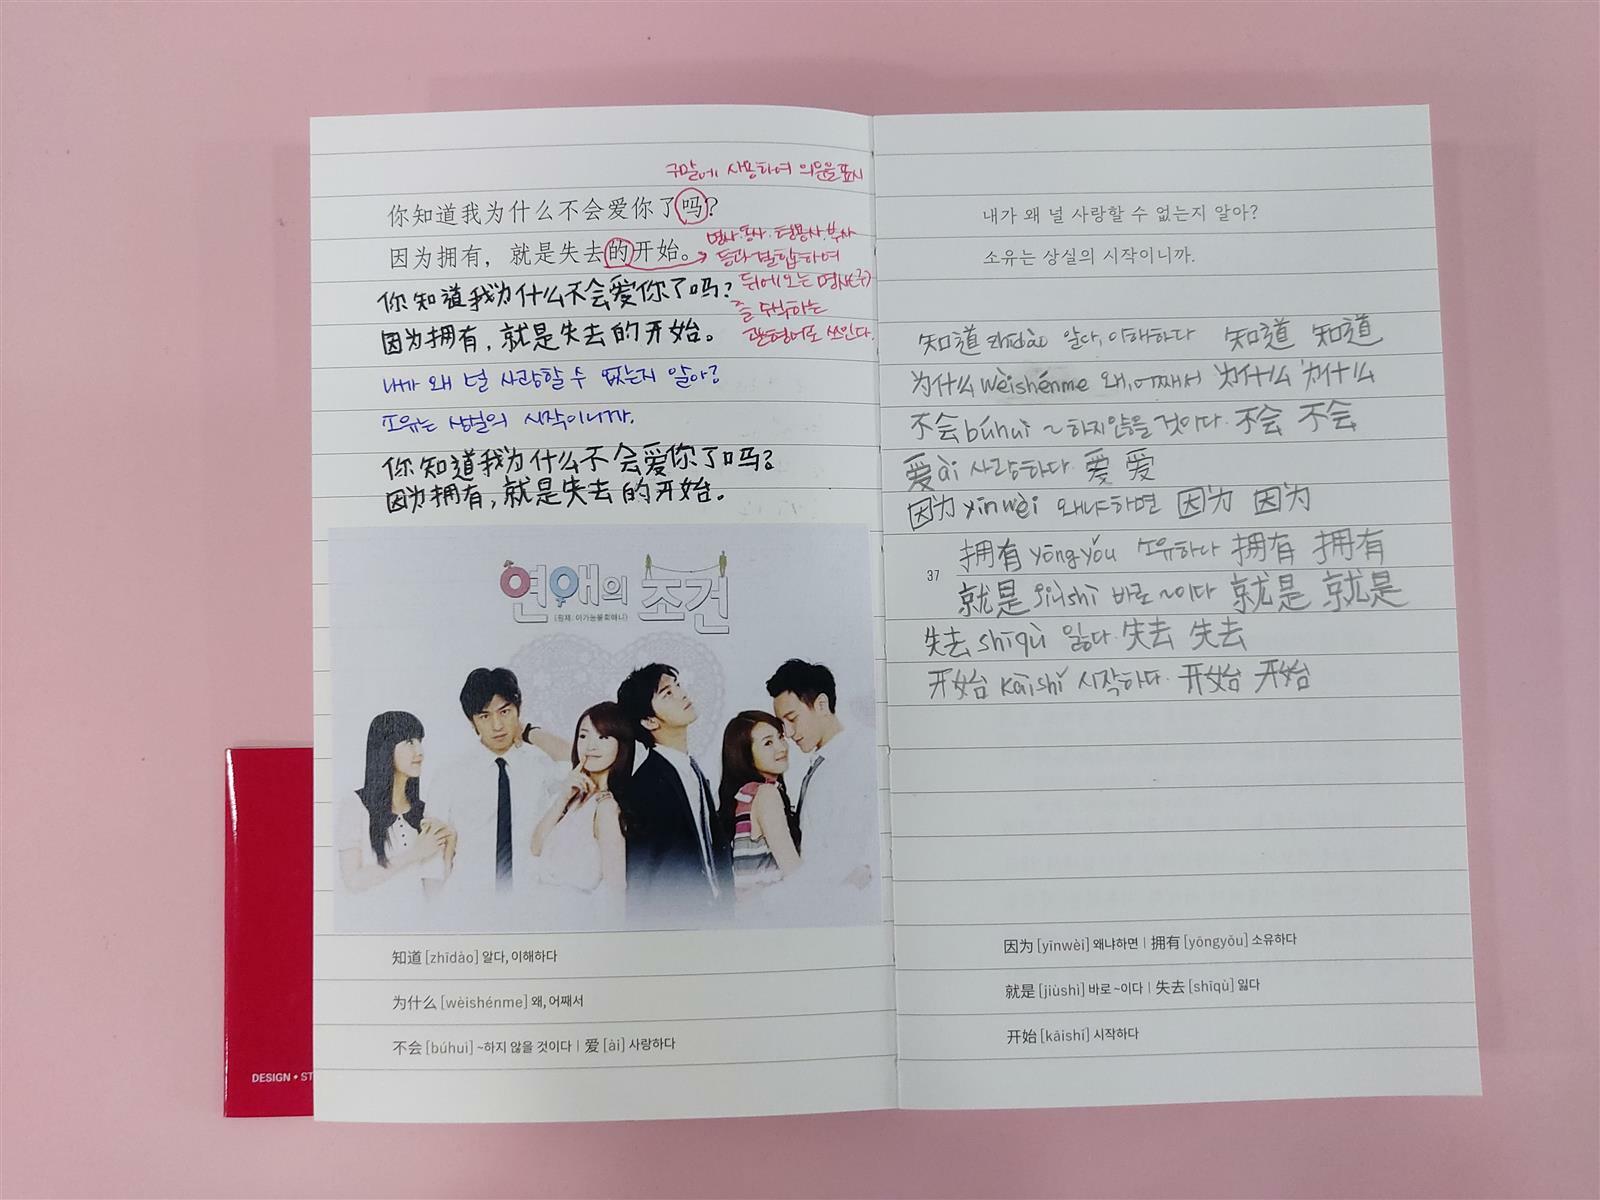 구말에 사용하여 의문을 표시
你知道我为什么不会爱你了吗?
因为拥有，就是失去的开始。
명사·동사·형용사·부사
등과 결합하여
뒤에 오는 명사(구)
를 수식하는
관형어로 쓰인다.
你知道我为什么不会爱你了吗?
因为拥有,就是失去的开始。
내가 왜 널 사랑할 수 없는지 알아?
소유는 상실의 시작이니까.
你知道我为什么不会爱你了吗?
因为拥有,就是失去的开始。
연애의 조건
知道 [zhīdào] 알다, 이해하다
为什么 [wèishénme] 왜, 어째서
不会 [búhuì] ~하지 않을 것이다 | 爱 [ài] 사랑하다
DESIGN • ST
내가 왜 널 사랑할 수 없는지 알아?
소유는 상실의 시작이니까.
知道 zhīdào 알다, 이해하다 知道 知道
为什么 wèishénme 왜, 어째서 为什么 为什么
不会 búhuì ~하지 않을 것이다. 不会 不会
爱 ài 사랑하다. 爱 爱
因为 yīnwèi 왜냐하면 因为 因为
拥有 yōngyǒu 소유하다 拥有 拥有
37
就是 jiùshì 바로 ~이다 就是 就是
失去 shīqù 잃다. 失去 失去
开始 kāishǐ 시작하다. 开始 开始
因为 [yīnwèi] 왜냐하면 | 拥有 [yōngyǒu] 소유하다
就是 [jiùshì] 바로 ~이다 | 失去 [shīqù] 잃다
开始 [kāishǐ] 시작하다